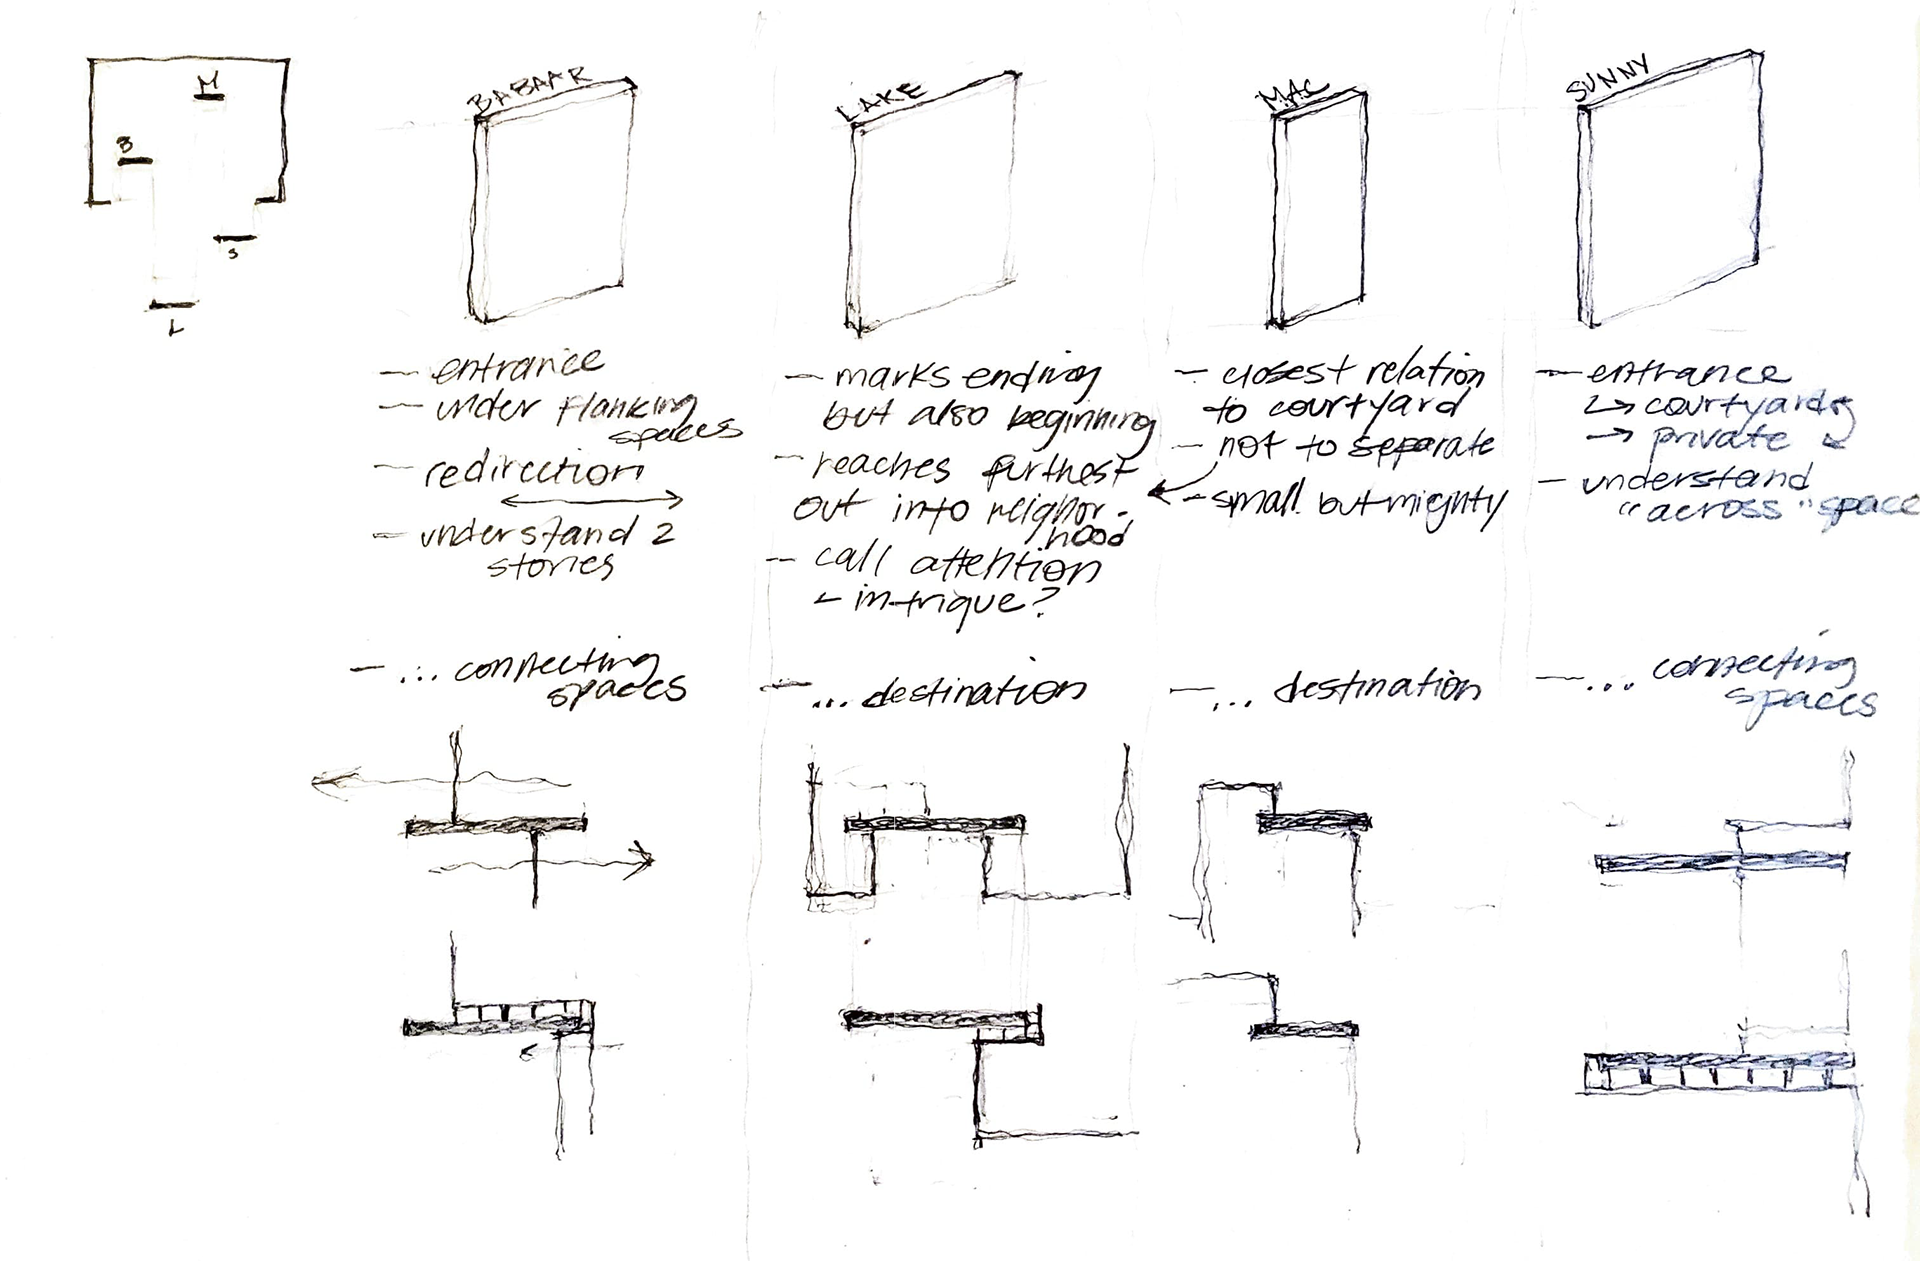 M
B
S
L
BABAAR
— entrance
— under flanking
spaces
— redirection
— understand 2
stories
— ... connecting
spaces
LAKE
— marks ending
but also beginning
— reaches furthest
out into neighbor-
hood
— call attention
intrigue?
— ... destination
MAC
— closest relation
to courtyard
— not to separate
— small but mighty
— ... destination
SUNNY
— entrance
↳ courtyard
→ private
— understand
"across" space
— ... connecting
spaces